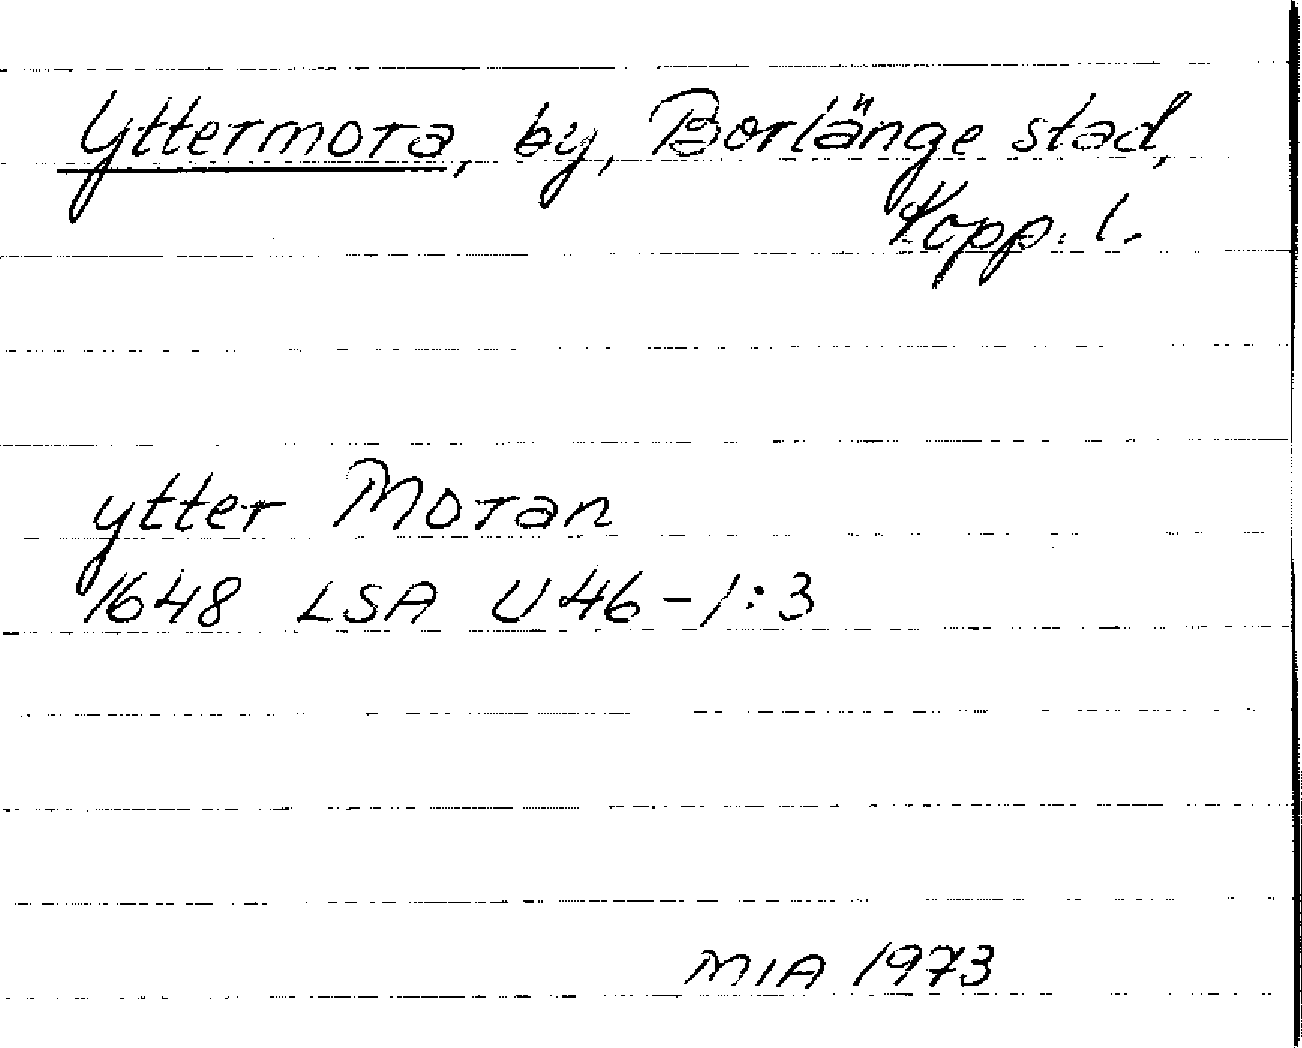 Yttermora, by, Borlänge stad,
Kopp. l.
ytter Moran
1648 LSA U46-1:3
MIA 1973